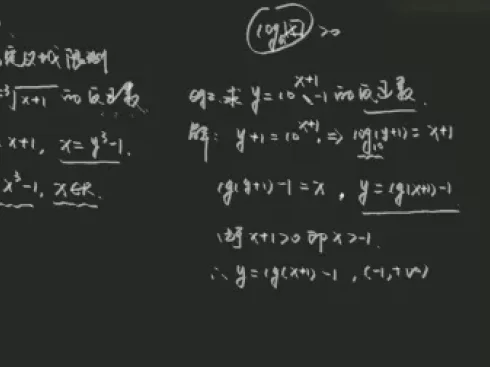 定义域限制
=³√x+1 的反函数
x+1, x=y³-1.
x³-1, x∈R.
>0
eg2. 求 y=10^(x+1)-1 的反函数.
解: y+1=10^(x+1), ⇒ log₁₀(y+1)=x+1
lg(y+1)-1=x, y=lg(x+1)-1
x+1>0 即 x>-1.
∴ y=lg(x+1)-1, (-1,+∞)